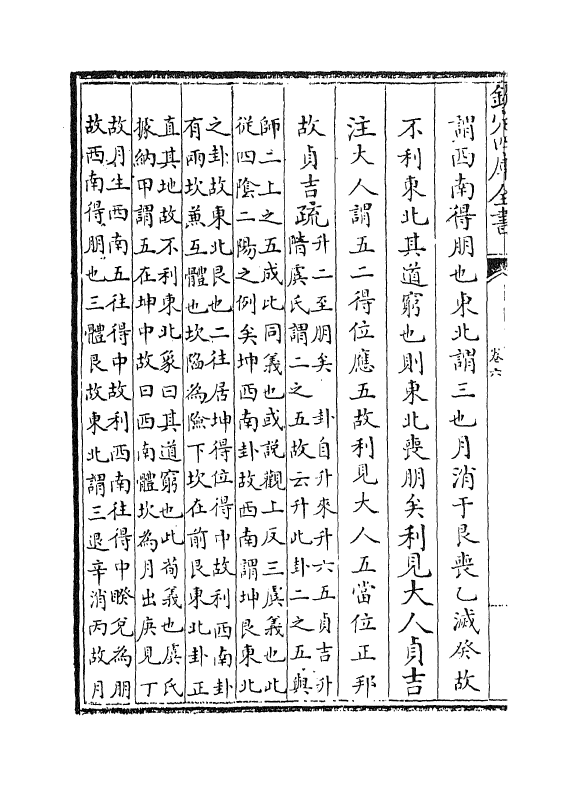 欽定四庫全書
卷六
謂西南得朋也東北謂三也月消于艮喪乙滅癸故
不利東北其道窮也則東北喪朋矣利見大人貞吉
注大人謂五二得位應五故利見大人五當位正邦
故貞吉疏升二至朋矣 卦自升來升六五貞吉升
階虞氏謂二之五故云升此卦二之五與
師二上之五成比同義也或說觀上反三虞義也此
從四陰二陽之例矣坤西南卦故西南謂坤艮東北
之卦故東北艮也二往居坤得位得中故利西南卦
有兩坎兼互體也坎陷為險下坎在前艮東北卦正
直其地故不利東北彖曰其道窮也此荀義也虞氏
據納甲謂五在坤中故曰西南體坎為月出庚見丁
故月生西南五往得中故利西南往得中睽兌為朋
故西南得朋也三體艮故東北謂三退辛消丙故月